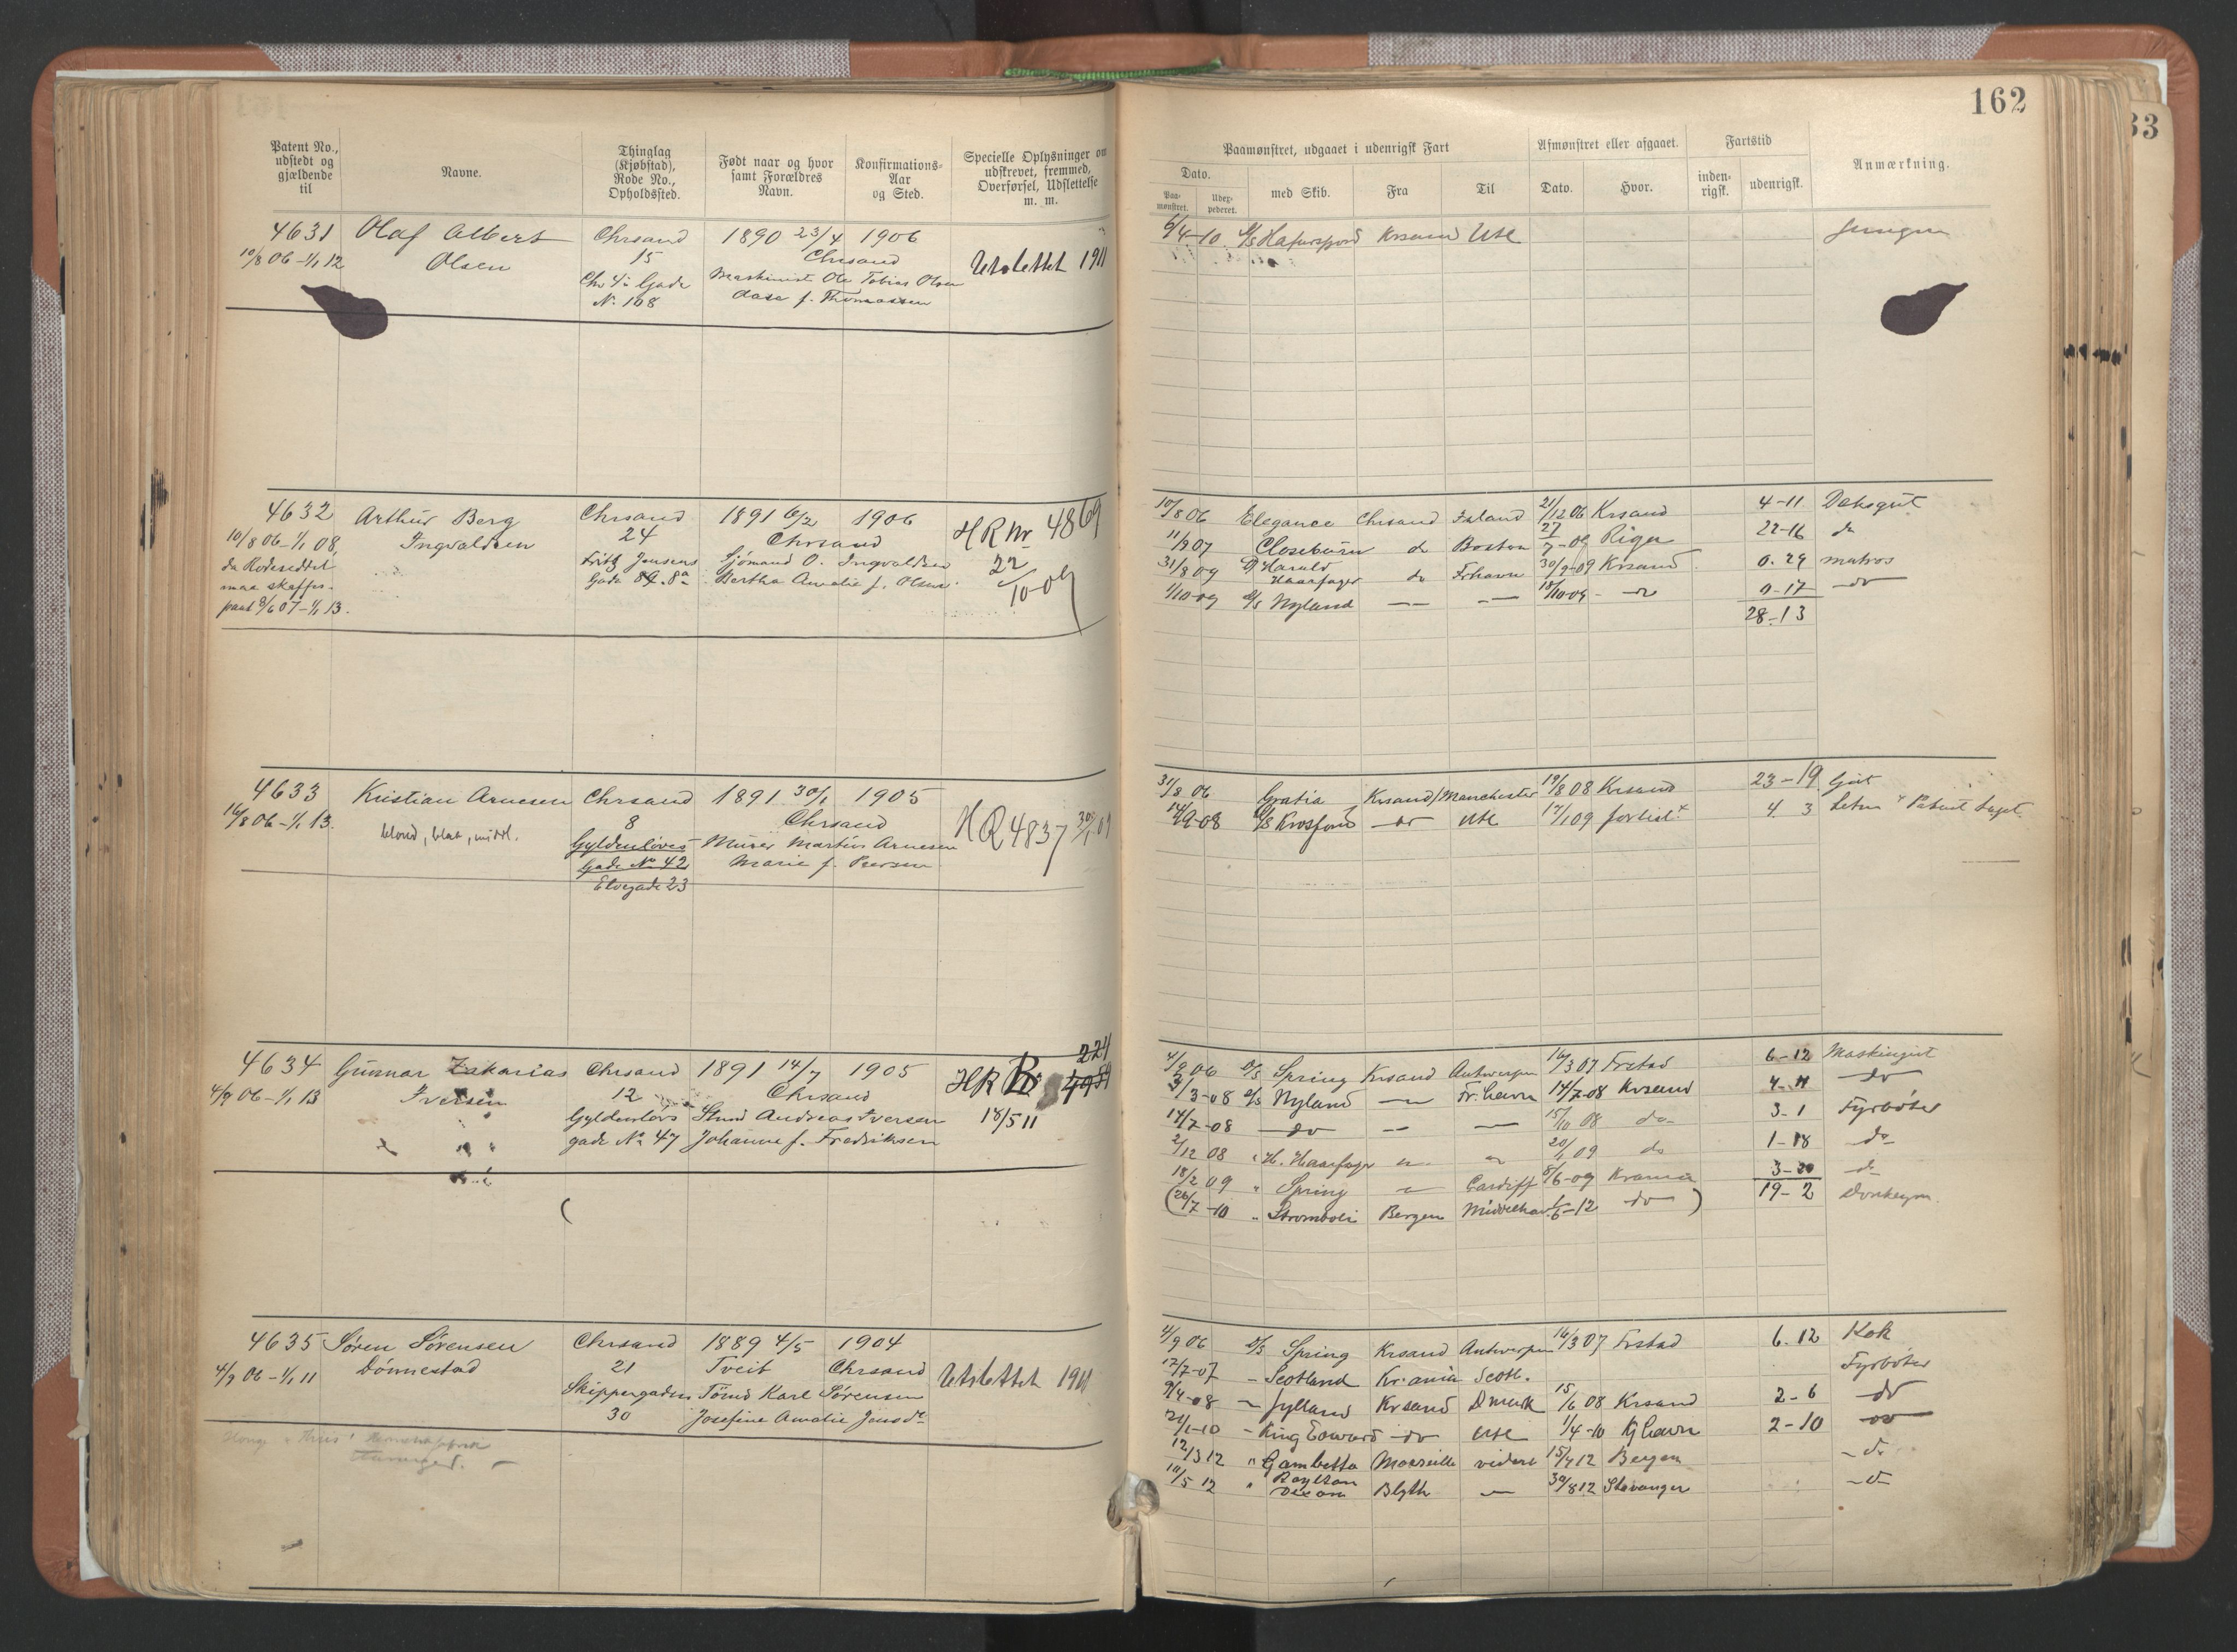 162
33
Patent No., udstedt og gjældende til
Navne.
Thinglag (Kjøbstad), Rode No., Opholdssted.
Født naar og hvor samt Forældres Navn.
Konfirmations-Aar og Sted.
Specielle Oplysninger om udskrevet, fremmed, Overførsel, Udslettelse m. m.
Paamønstret, udgaaet i udenrigsk Fart
Afmønstret eller afgaaet.
Fartstid
Anmærkning.
Dato.
Paa-mønstret.
Udex-pederet.
med Skib.
Fra
Til
Dato.
Hvor.
inden-rigsk.
udenrigsk.
4631 Olaf Albert Chrsand 1890 23/4 1906
10/8 06 - 1/1 12 Olsen 15 Chrsand Utslettet 1911
Chr 4s Gade Maskinist Ole Tobias Olsen
N. 108 Aase f. Thomassen
6/4-10 Hafursfjord Krsand Ute
4632 Arthur Berg Chrsand 1891 6/2 1906 HR Nr 4869
10/8 06 - 1/1 08, Ingvaldsen 24 Chrsand
da Rodeseddel Fritz Jensens Sjømand O. Ingvaldsen 22/10-09
maa skaffes. Gade 84. 8a Bertha Amalie f. Olsen
paat 8/6 07 - 1/1 13.
10/8 06 Elegance Chrsand Island 21/12 06 Krsand 4-11 Daksgut
11/2 07 Closeburn do Boston 27/7-09 Riga 22-16 do
31/8 09 D Harald Haarfager do Frhavn 30/9-09 Krsand 0.29 matros
1/10-09 D/S Nyland — — 18/10-09 - do 0-17 do
28-13
4633 Kristian Arnesen Chrsand 1891 30/1 1905
16/8 06 - 1/1 13. blond, blaa, middl. 8 Chrsand HR 4837 30/1 09
Gyldenløves Murer Martin Arnesen
Gade No 42 Marie f. Peersen
Elvegade 23
31/8 06 Gratia Krsand Manchester 19/8 08 Krsand 23-19 Gut
14/9-08 D/S Krosfond do Ute 17/1 09 forlist 4 3 Patent taget
4634 Gunnar Zakarias Chrsand 1891 14/7 1905 HR
4/9 06 - 1/1 13 Iversen 12 Chrsand
Gyldenløvs Andreas Iversen 18/5 11
gade No 47 Johanne f. Fredriksen
4/9 06 D/S Spring Krsand Antwerpen 16/3 07 Frstad 6-12 Maskingut
3-08 D/S Nyland — Fr.havn 14/7-08 Krsand 4-11 do
14/7-08 do — — 15/10 08 do 3-1 Fyrbøter
2/12 08 H. Haarfager 20/1 09 do 1-18 do
18/2 09 Spring — Cardiff 8/6-09 Krania 3-20 do
(26/7-10 Stromboli Bergen Middelhav 1/6-12 do) 19-2
4635 Søren Sørensen Chrsand 1889 4/5 1904
4/9 06 - 1/1 11 Dønnestad 21 Tveit Chrsand Utslettet 1911
Skippergaden Tømd Karl Sørensen
30 Josefine Amalie
4/9 06 D/S Spring Krsand Antwerpen 16/3 07 Frstad 6.12 Kok
17/7-07 Scotland Kr:ania Scotl. Fyrbøter
9/4-08 Jylland Krsand Dmark 15/6 08 Krsand 2-6 do
21/1-10 King Edward do Ute 1/4-10 Kjhavn 2-10 do
12/3 12 Gambetta Marseille videre 15/4 12 Bergen do
10/5 12 Dixon Blyth — 30/8 12 Stavanger do